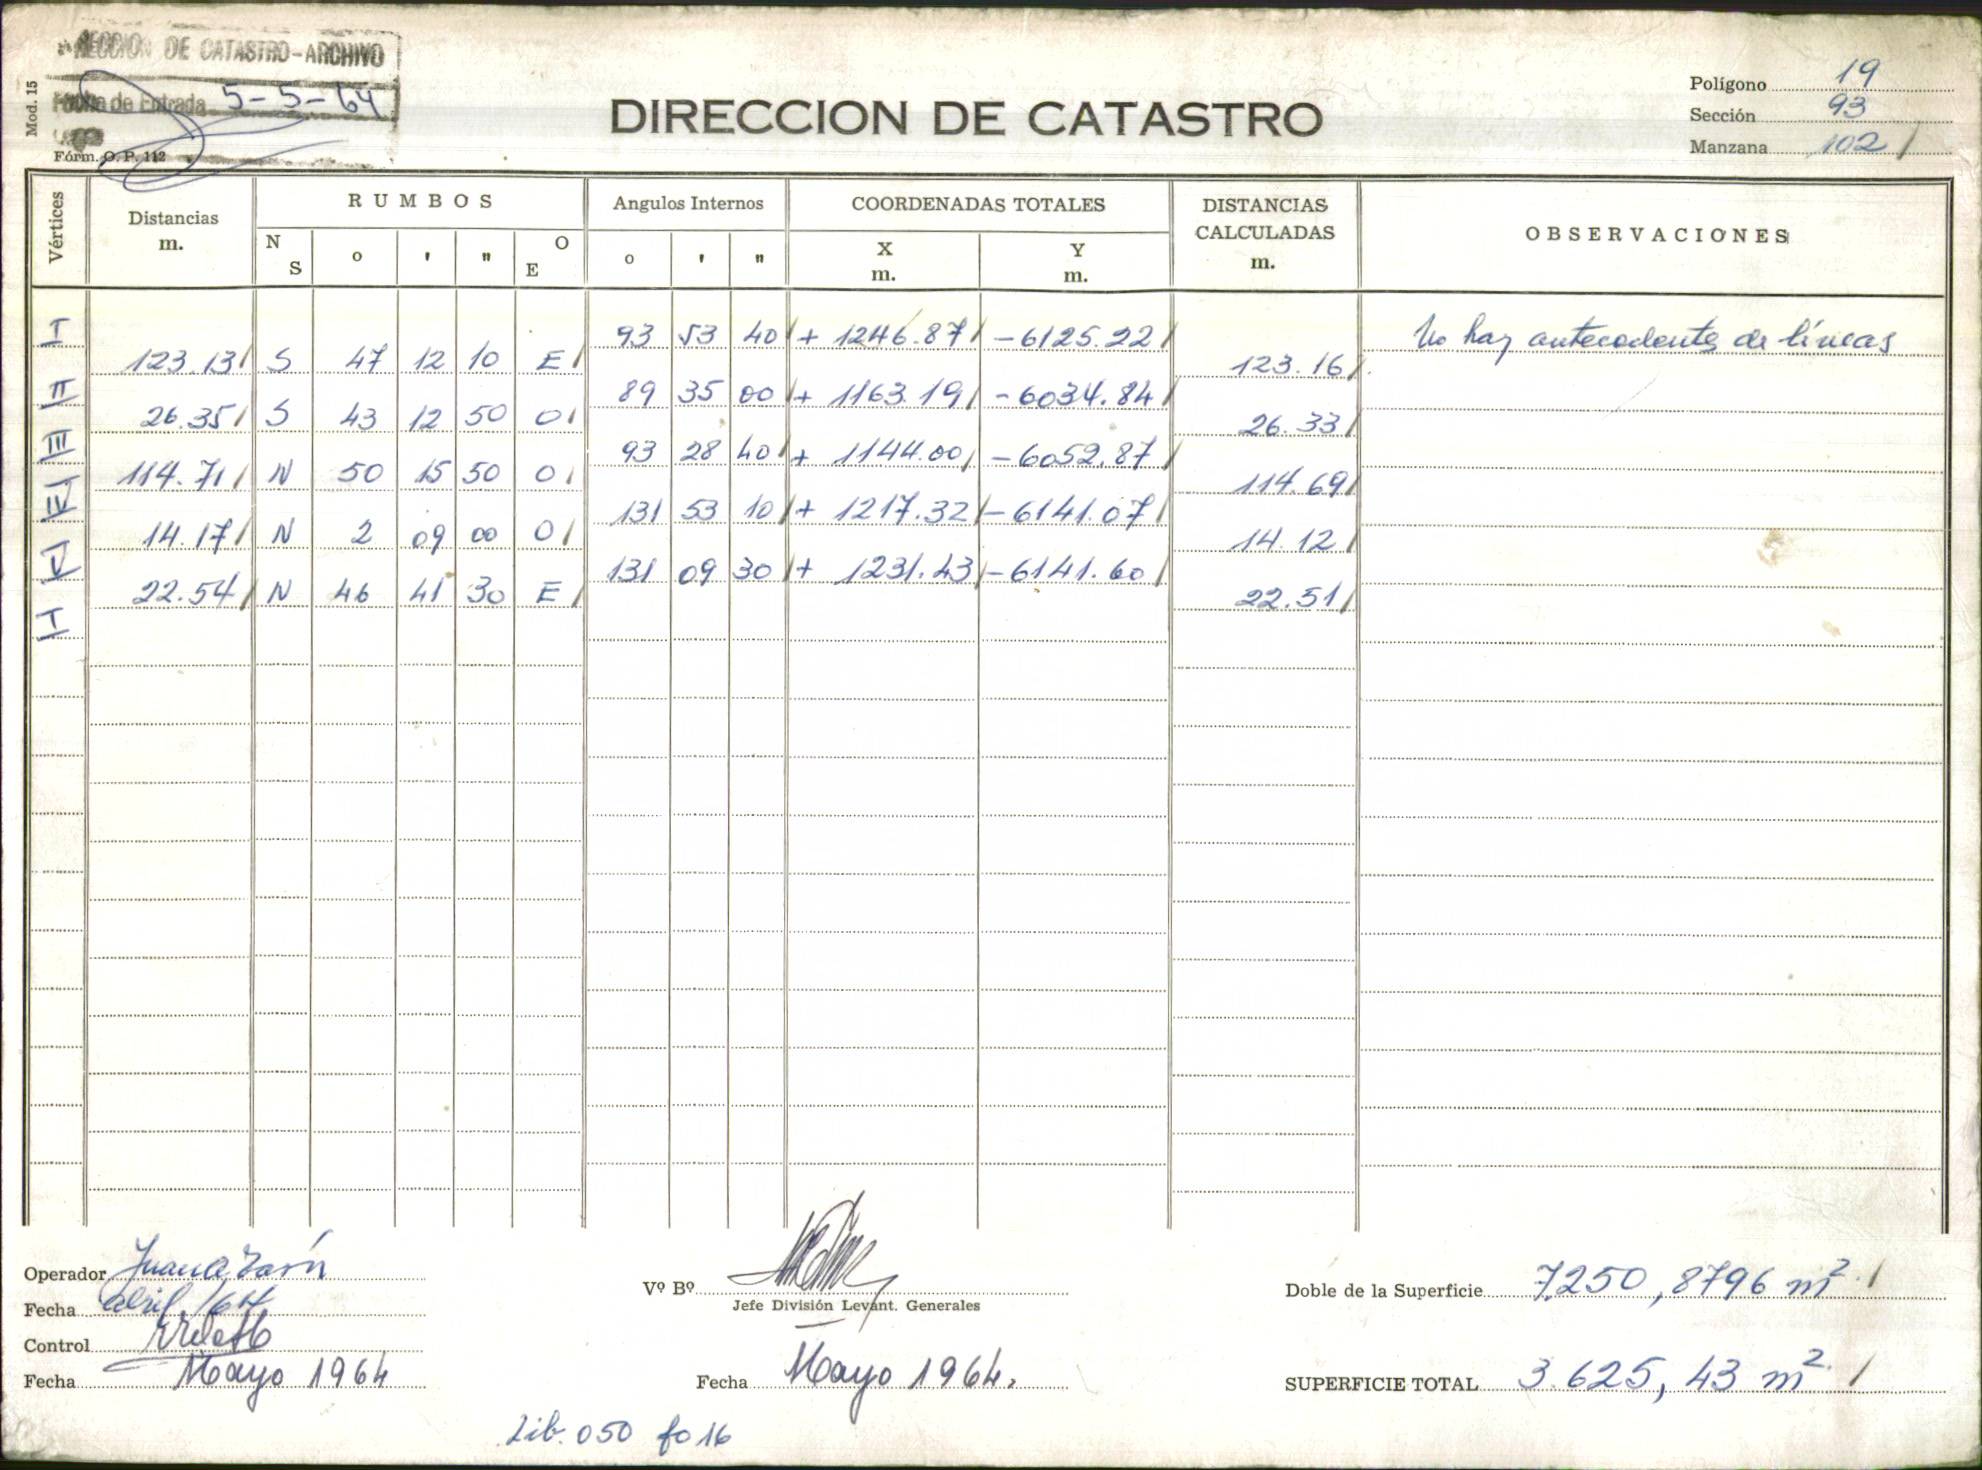 SECCION DE CATASTRO-ARCHIVO
Fecha de Entrada 5-5-64
Mod. 15
Fórm. O. P. 112
DIRECCION DE CATASTRO
Polígono 19
Sección 93
Manzana 102 /
Vértices
Distancias
m.
RUMBOS
N S ° ' " O E
Angulos Internos
° ' "
COORDENADAS TOTALES
X
m.
Y
m.
DISTANCIAS
CALCULADAS
m.
OBSERVACIONES
I 93 53 40 / + 1246.87 / -6125.22 / No hay antecedentes de líneas
123.13 / S 47 12 10 E / 123.16 /
II 89 35 00 + 1163.19 / -6034.84 /
26.35 / S 43 12 50 O / 26.33 /
III 93 28 40 / + 1144.00 / -6052.87 /
114.71 / N 50 15 50 O / 114.69 /
IV 131 53 10 / + 1217.32 / -6141.07 /
14.17 / N 2 09 00 O / 14.12 /
V 131 09 30 / + 1231.43 / -6141.60 /
22.54 / N 46 41 30 E / 22.51 /
I
Operador
Fecha abril /64
Control
Fecha Mayo 1964
Vº Bº
Jefe División Levant. Generales
Fecha Mayo 1964.
Doble de la Superficie 7.250,8796 m². /
SUPERFICIE TOTAL 3.625,43 m². /
Lib. 050 fo 16